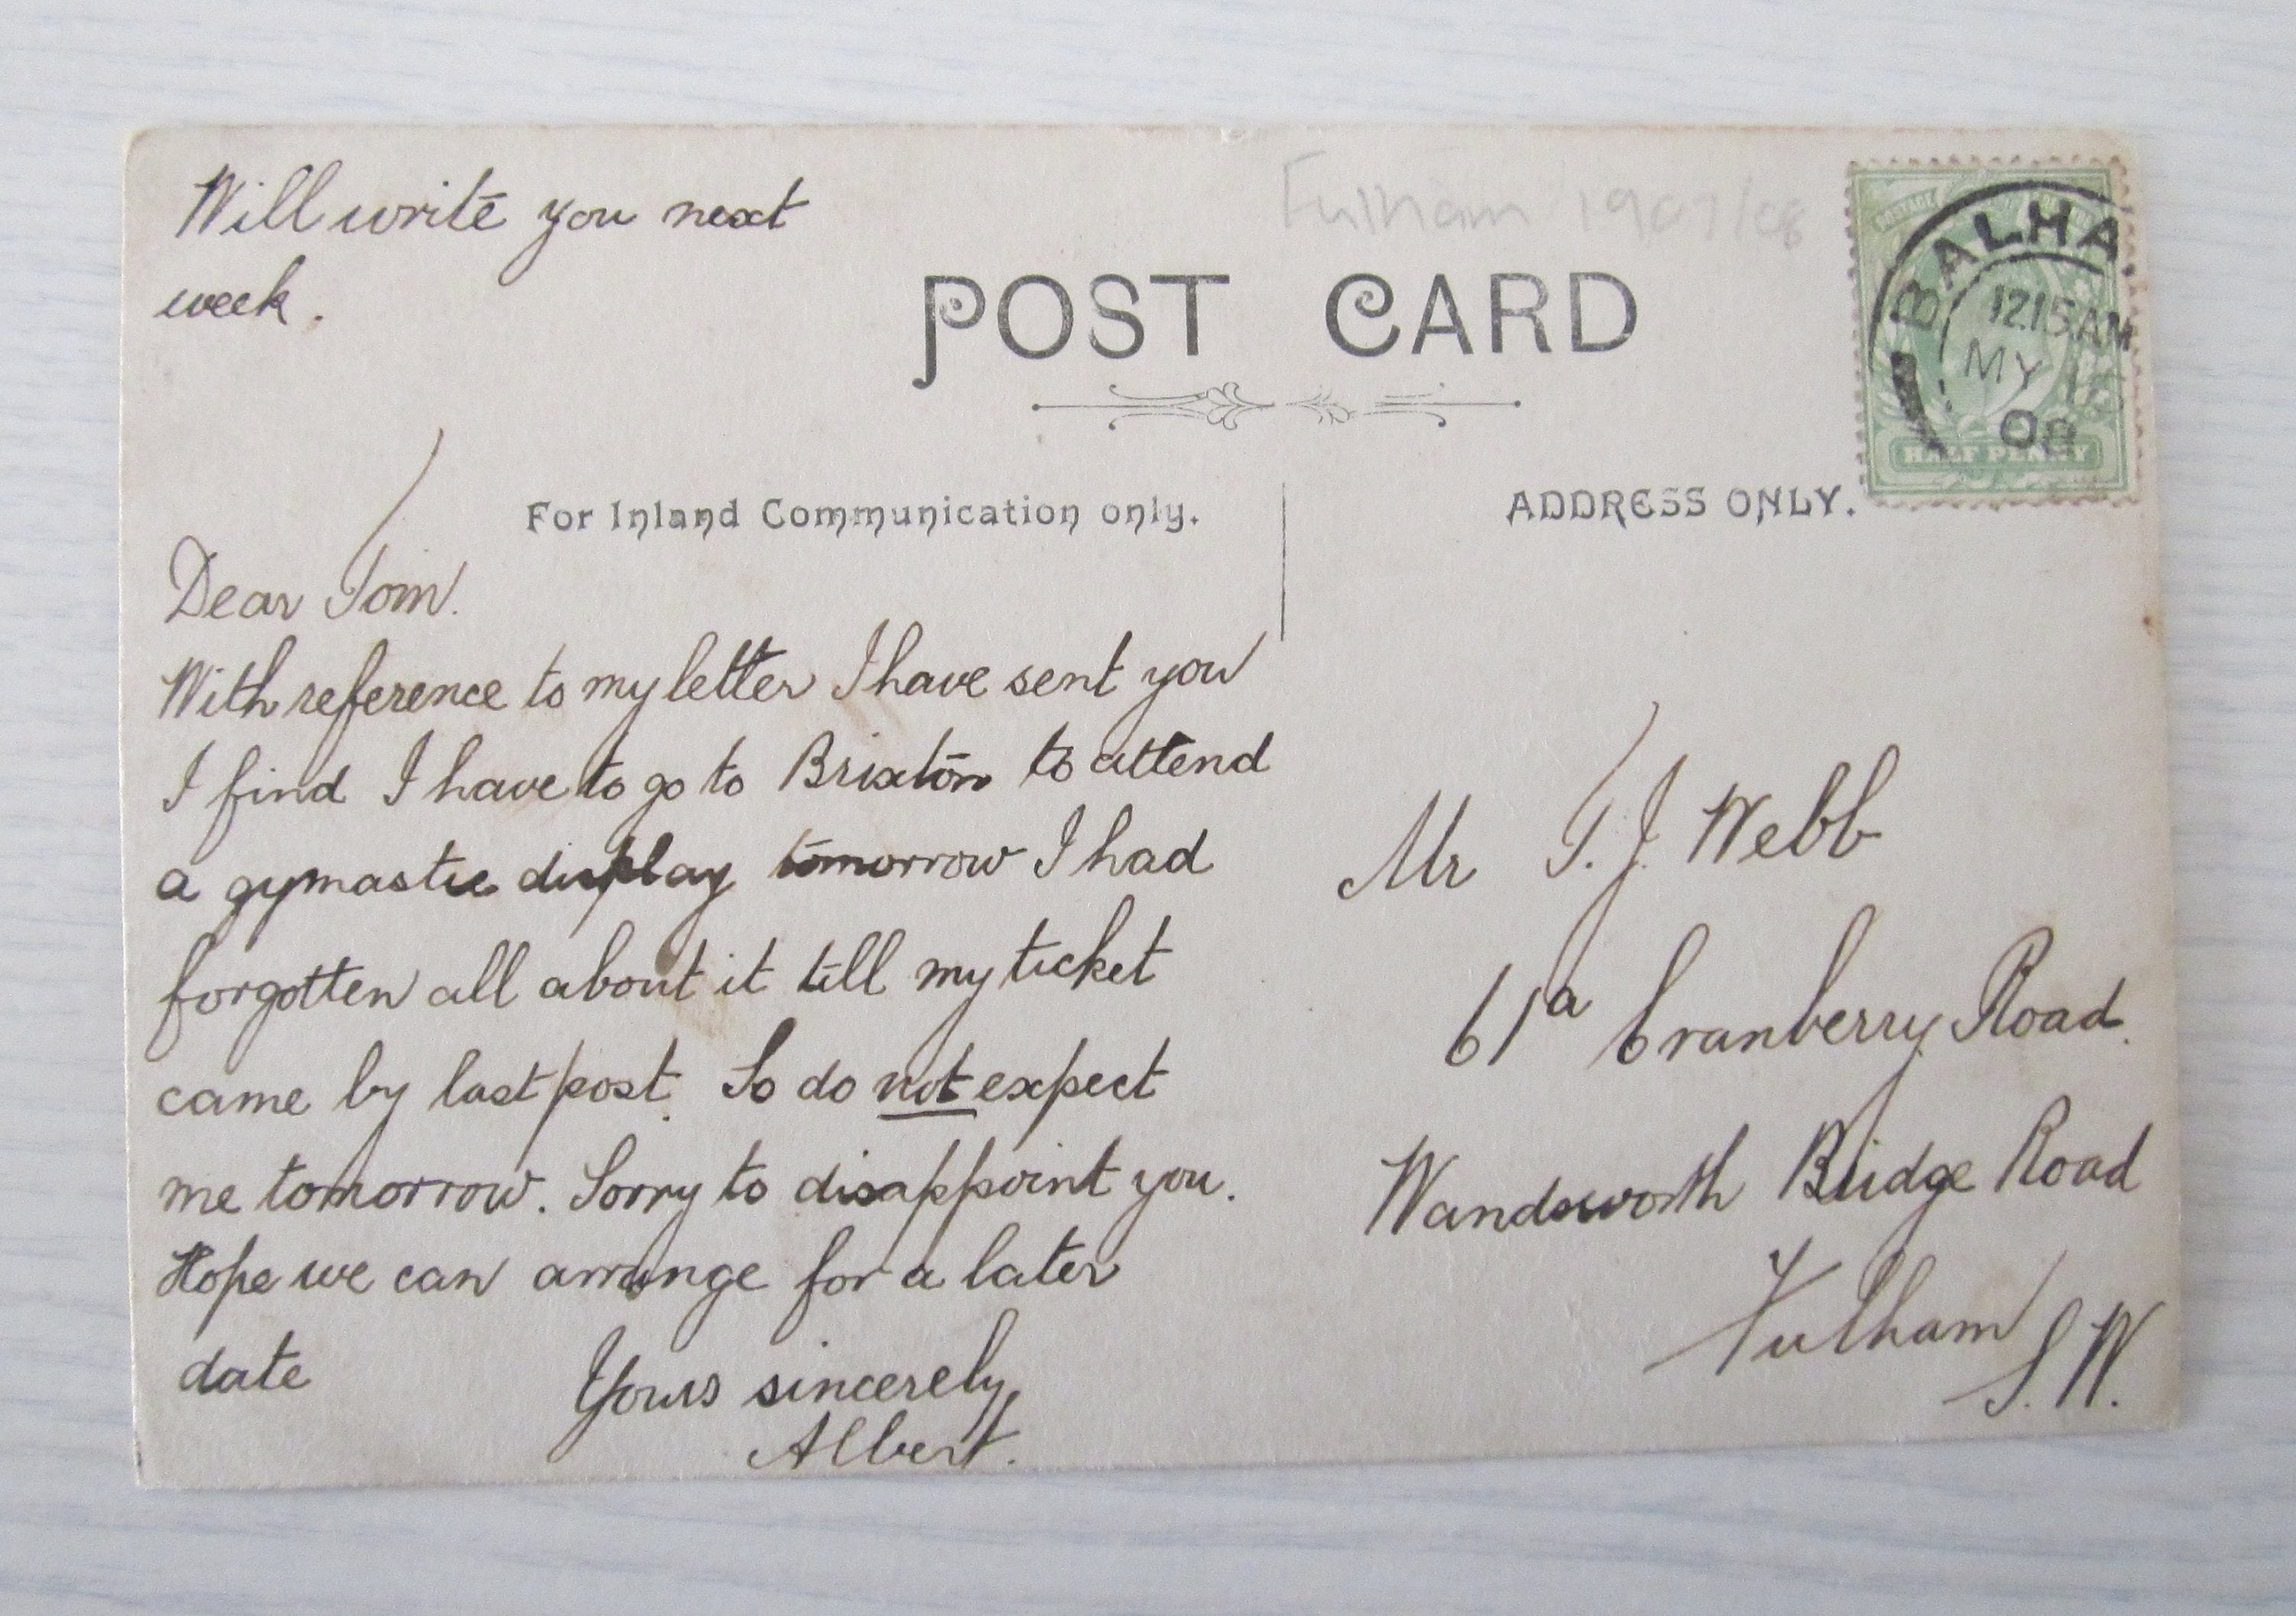 Will write you next
week.
Fulham 1907/08
POST CARD
BALHA
12.15AM
MY
08
HALF PENNY
For Inland Communication only.
ADDRESS ONLY.
Dear Tom.
With reference to my letter I have sent you
I find I have to go to Brixton to attend
a gymastic display tomorrow I had
forgotten all about it till my ticket
came by last post. So do not expect
me tomorrow. Sorry to disappoint you.
Hope we can arrange for a later
date
Yours sincerely,
Albert.
Mr T. J. Webb
61a Cranberry Road.
Wandsworth Bridge Road
Fulham
S.W.